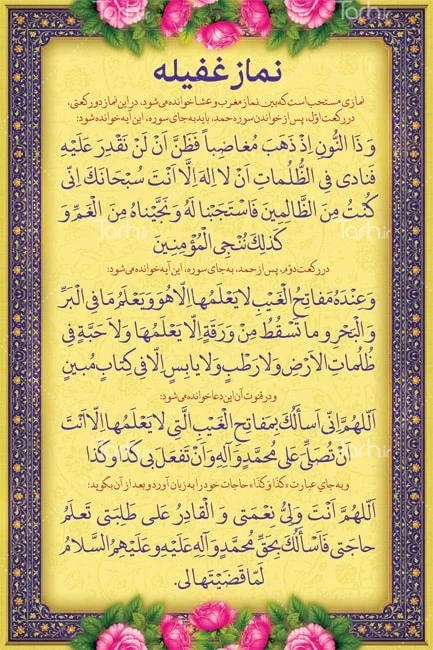 نماز غفیله
نمازی مستحب است که بین نماز مغرب و عشا خوانده می‌شود، در این نماز دو رکعتی،
در رکعت اوّل، پس از خواندن سوره حمد، باید به جای سوره، این آیه خوانده شود:
وَ ذَا النُّونِ اِذْ ذَهَبَ مُغاضِباً فَظَنَّ اَنْ لَنْ نَقْدِرَ عَلَیْهِ
فَنادی فِی الظُّلُماتِ اَنْ لا اِلهَ اِلَّا اَنْتَ سُبْحانَكَ اِنّی
کُنْتُ مِنَ الظَّالِمینَ فَاسْتَجَبْنا لَهُ وَ نَجَّیْناهُ مِنَ الْغَمِّ وَ
کَذلِكَ نُنْجِی الْمُؤْمِنینَ
در رکعت دوّم، پس از حمد، به جای سوره، این آیه خوانده می‌شود:
وَ عِنْدَهُ مَفاتِحُ الْغَیْبِ لا یَعْلَمُها اِلّا هُوَ وَ یَعْلَمُ ما فِی الْبَرِّ
وَ الْبَحْرِ وَ ما تَسْقُطُ مِنْ وَرَقَةٍ اِلّا یَعْلَمُها وَ لا حَبَّةٍ فی
ظُلُماتِ الْاَرْضِ وَ لا رَطْبٍ وَ لا یابِسٍ اِلّا فی کِتابٍ مُبینٍ
و در قنوت آن این دعا خوانده می‌شود:
اَللّهُمَّ اِنّی اَسأَلُكَ بِمَفاتِحِ الْغَیْبِ الَّتی لا یَعْلَمُها اِلّا اَنْتَ
اَنْ تُصَلِّیَ عَلی مُحَمَّدٍ وَ آلِهِ وَ اَنْ تَفْعَلَ بی کَذا وَ کَذا
و به جای عبارت «کَذا وَ کَذا» حاجات خود را به زبان آورد و بعد از آن بگوید:
اَللّهُمَّ اَنْتَ وَلِیُّ نِعْمَتی وَ الْقادِرُ عَلی طَلِبَتی تَعْلَمُ
حاجَتی فَاَسْأَلُكَ بِحَقِّ مُحَمَّدٍ وَ آلِهِ عَلَیْهِ وَ عَلَیْهِمُ السَّلامُ
لَمّا قَضَیْتَها لی.